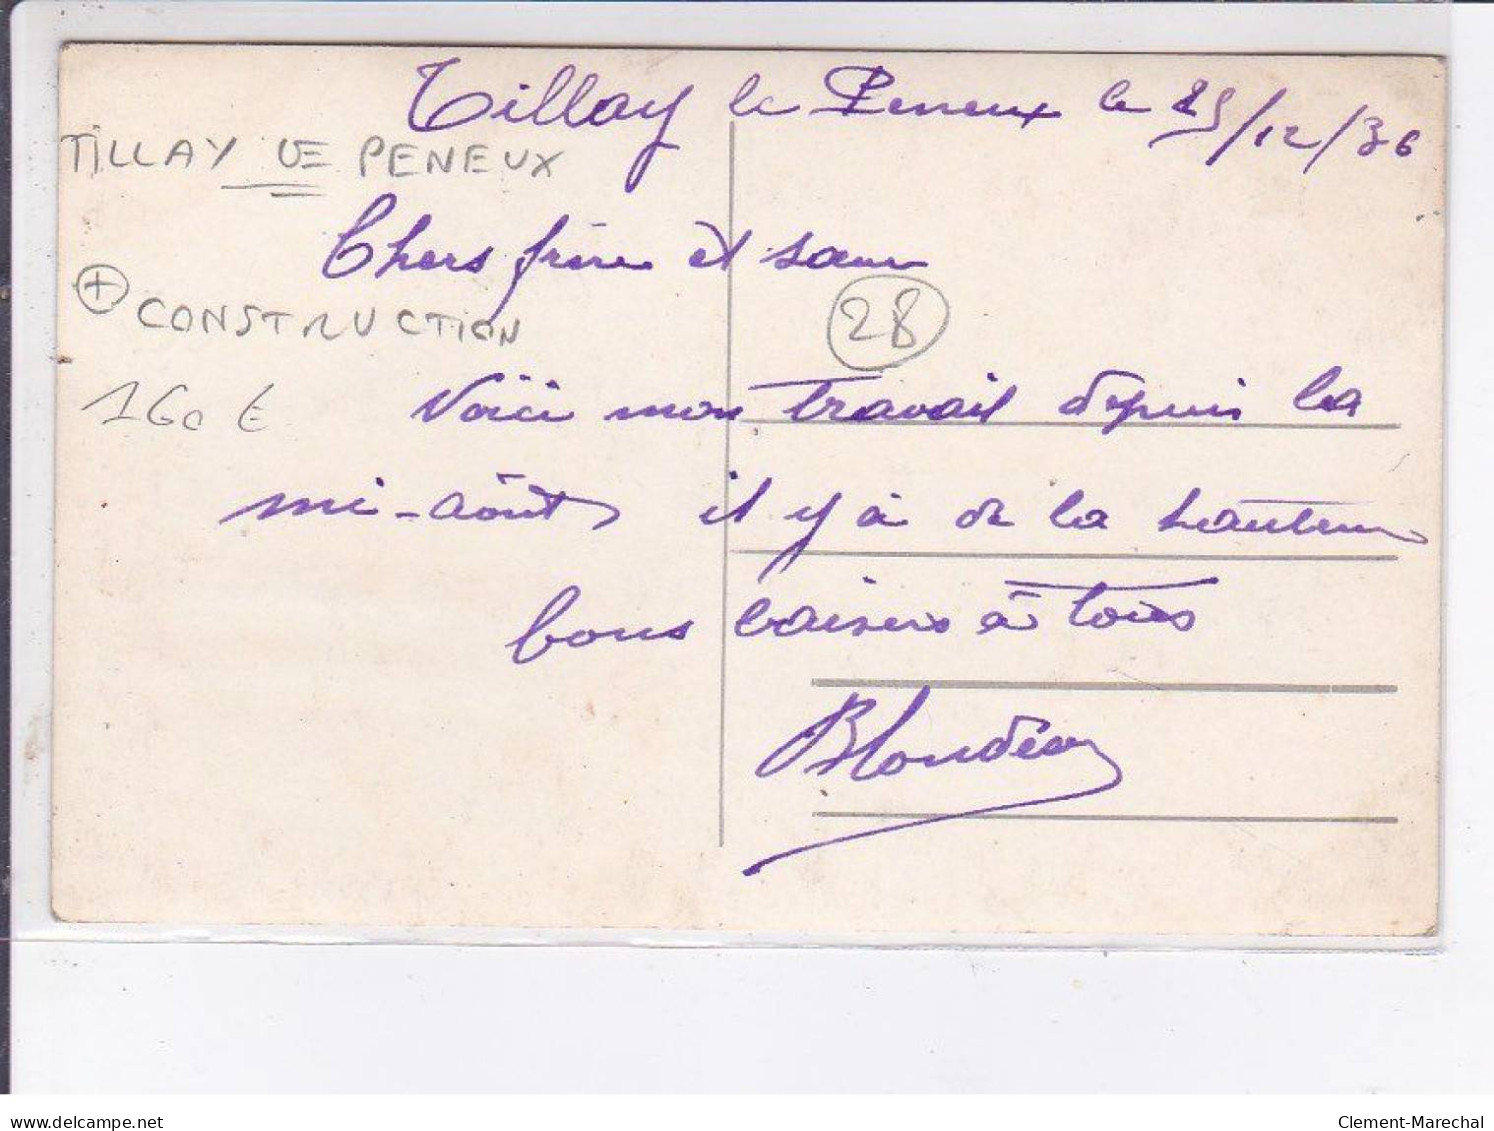 Tillay le Peneux le 25/12/36
TILLAY LE PENEUX
Chers frère et sœur
+ CONSTRUCTION
28
160 €
Voici mon travail depuis la
mi-août il y à de la hauteur
bons baisers à tous
Blondeau
delcampe.net
Clement-Marechal